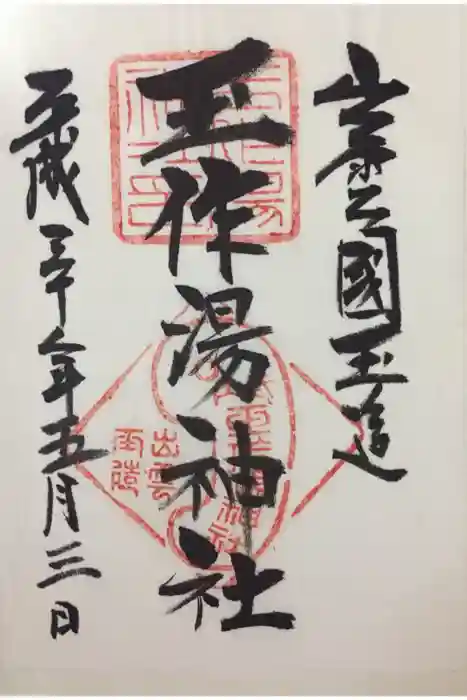 出雲國玉造
玉作湯神社
平成三十年五月三日
出雲